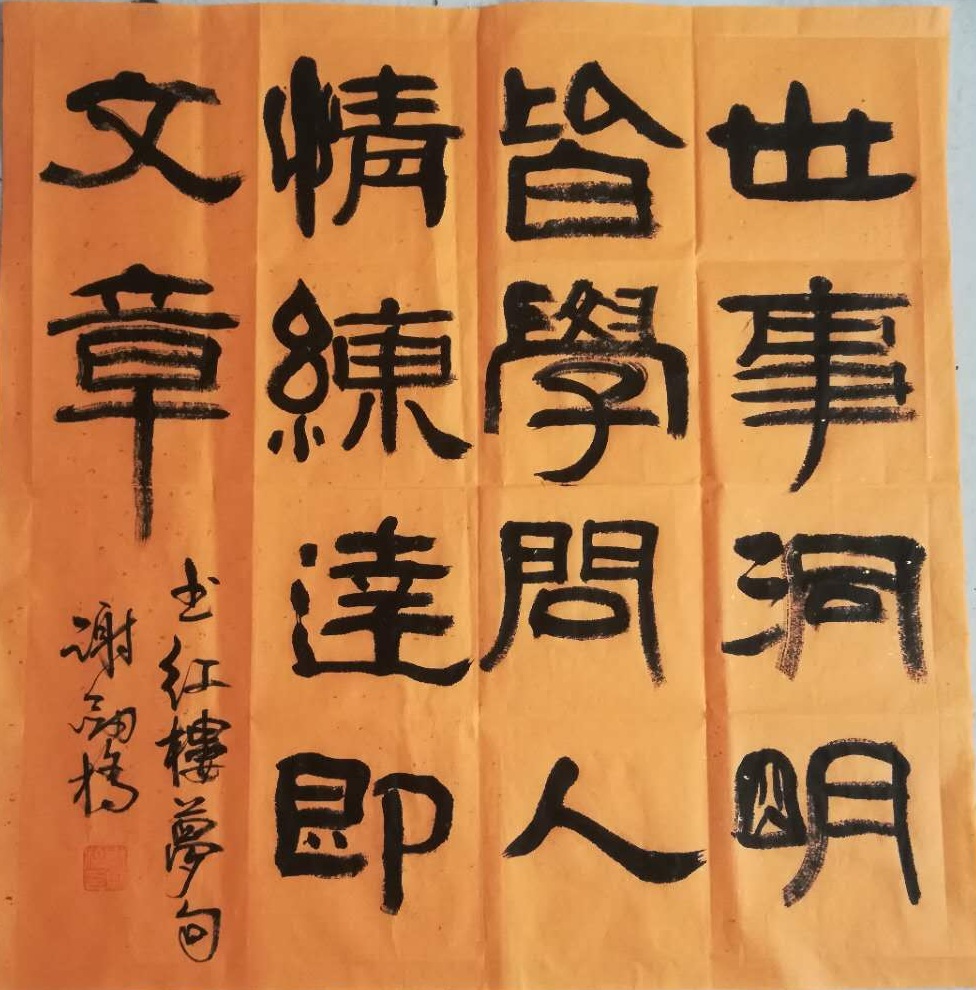 世事洞明
皆學問人
情練達即
文章
书紅樓夢句
谢劍橋